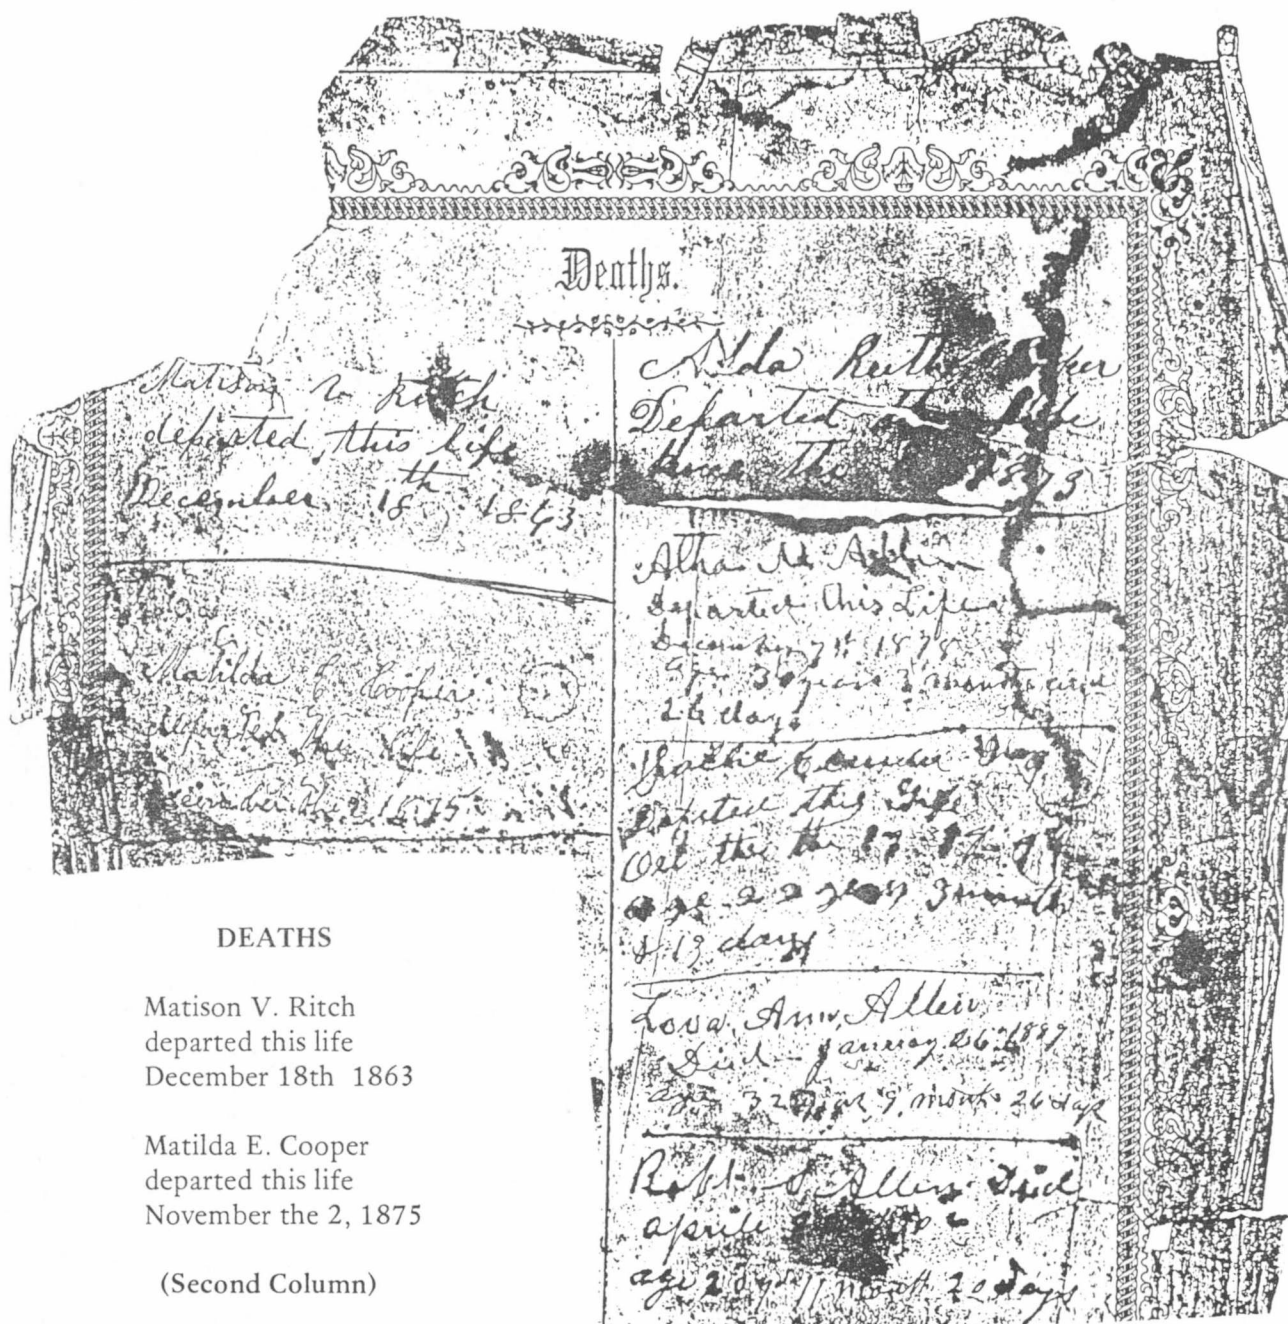 Deaths.
Matison V Ritch
departed this life
December 18th 1863
Matilda E Cooper
departed this life
the 2 1875
Alda Ruth
Departed this life
the 1873
Atha M
Departed this Life
December 7th 1878
3 years 3 months and
26 days
Departed this Life
the the 17
age 22 years 3 month
& 19 days
Lova Ann Allen
Died January 26th 1889
age 32 year 9 month 26 days
Robt. S Allen Died
aprile
age 28 yrs 11 month 20 days
DEATHS
Matison V. Ritch
departed this life
December 18th 1863
Matilda E. Cooper
departed this life
November the 2, 1875
(Second Column)